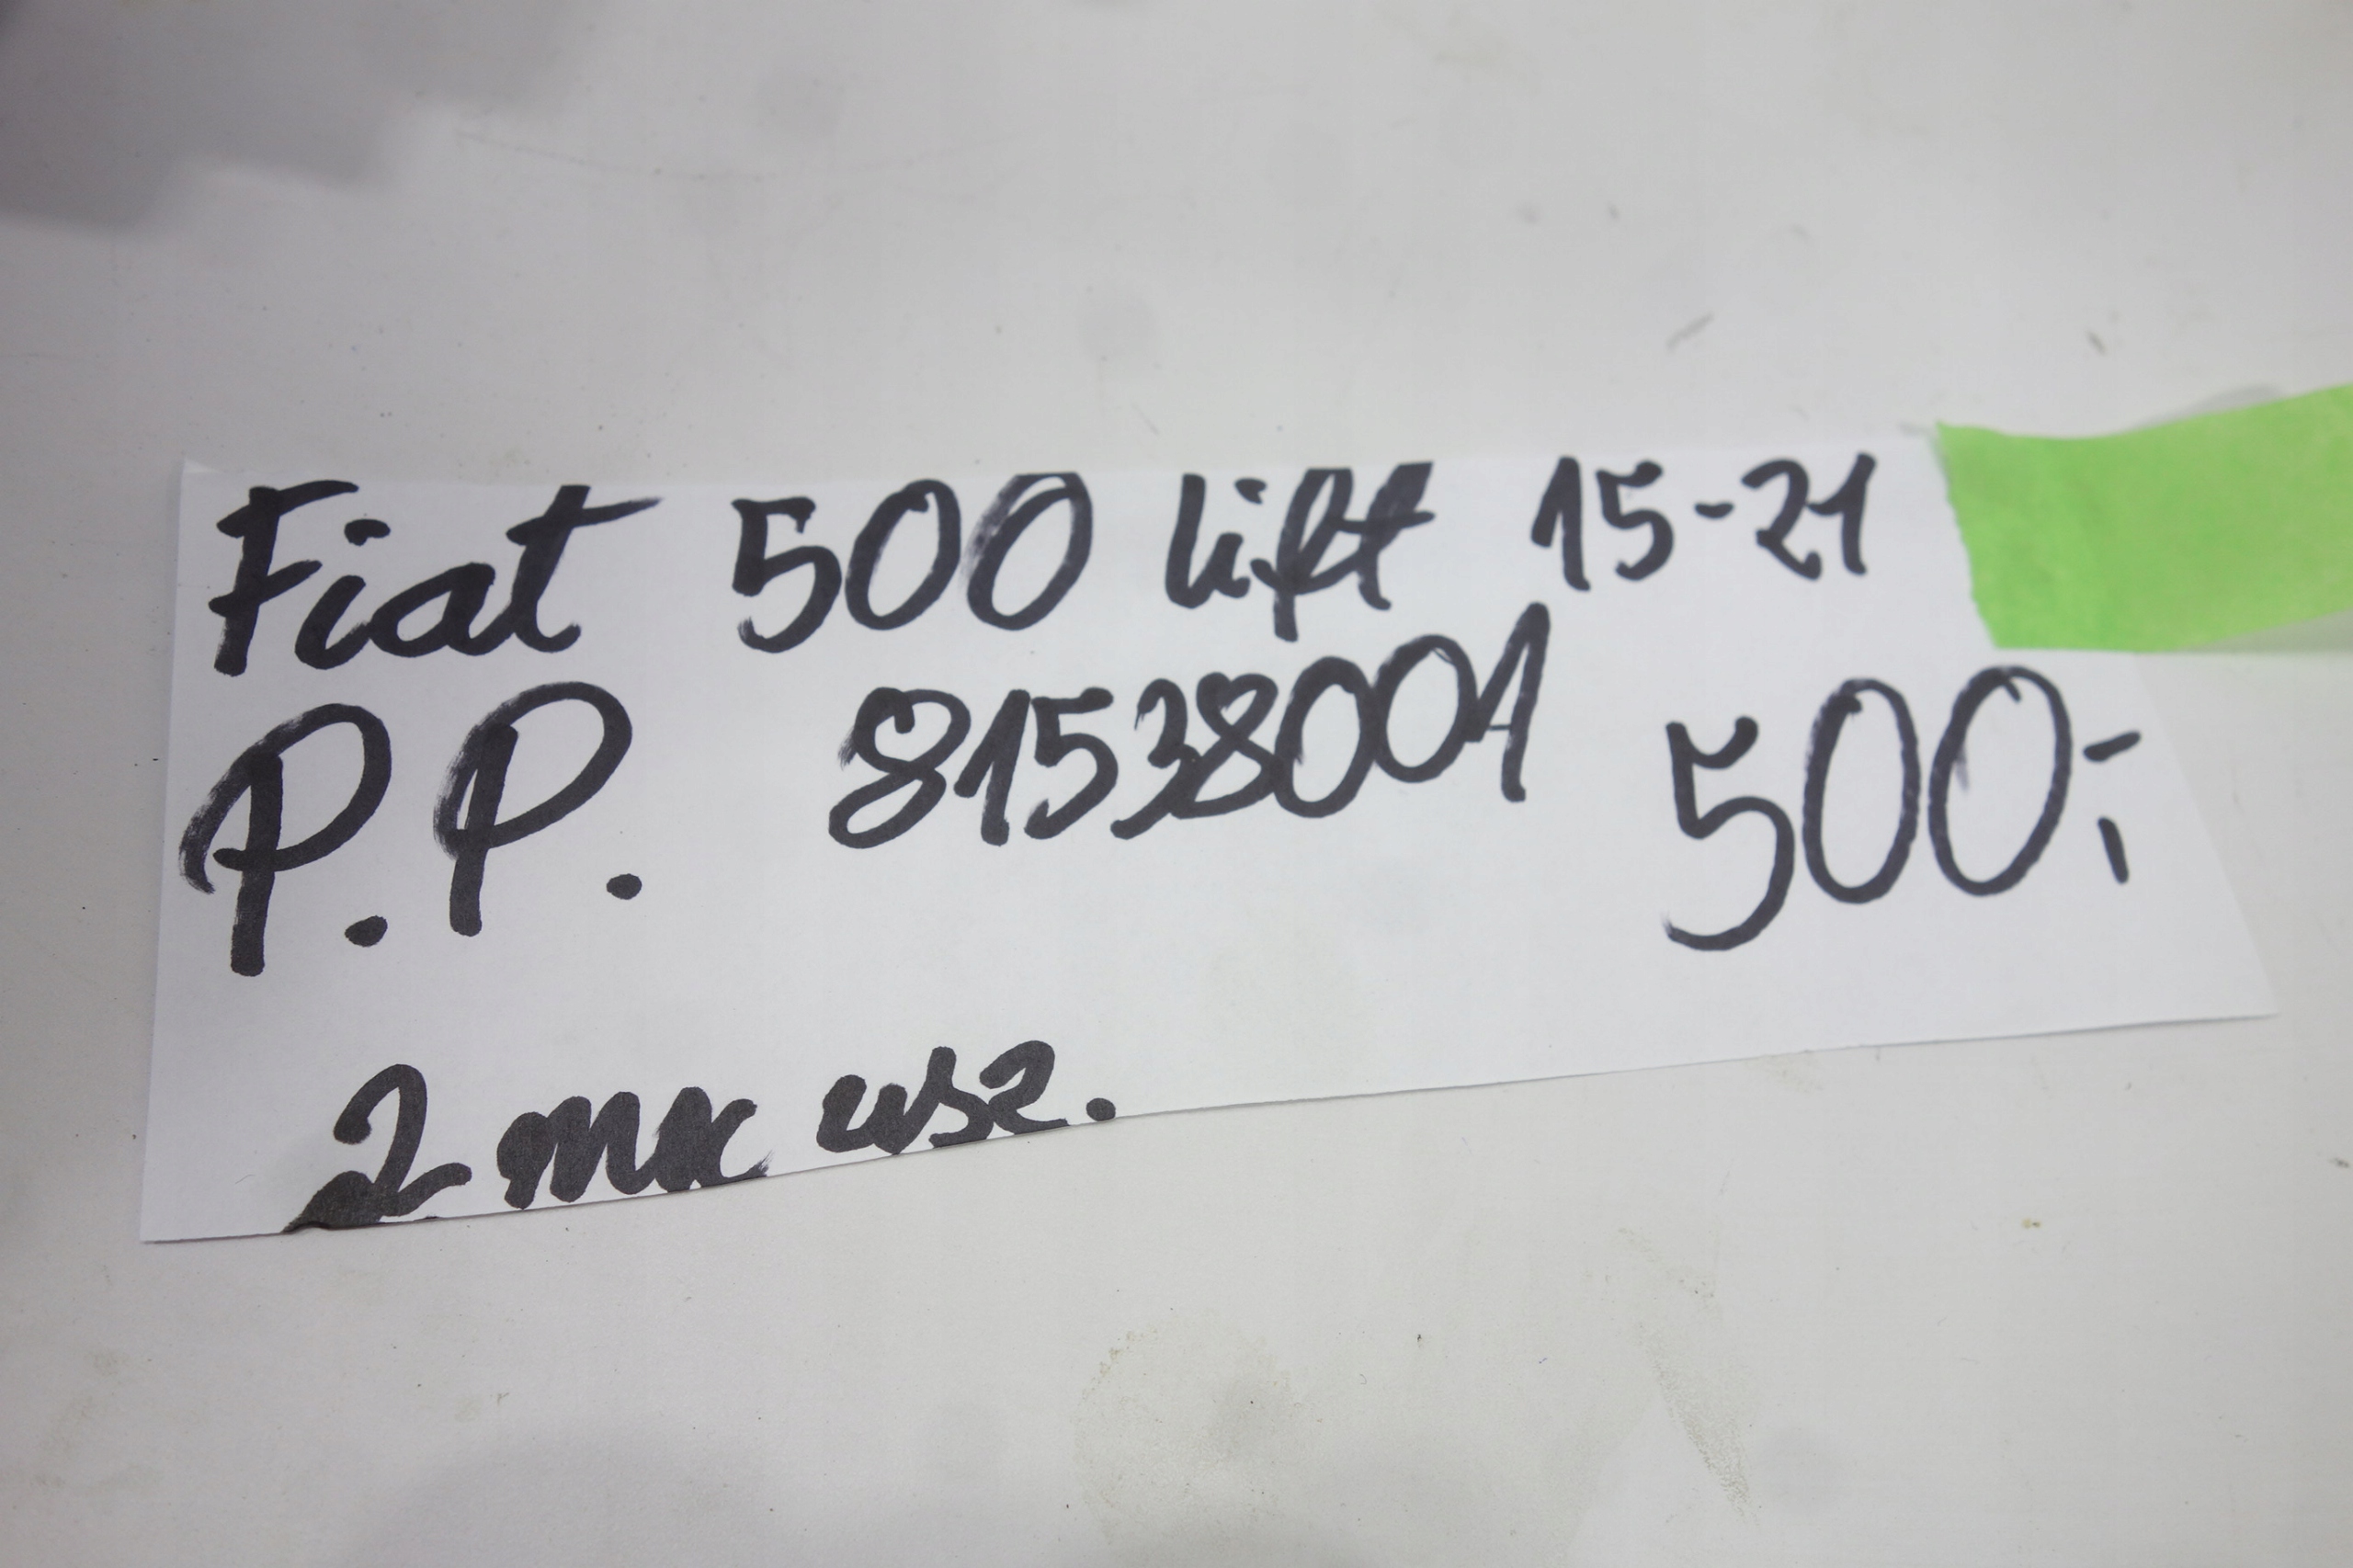 Fiat 500 lift 15-21
P.P. 81538001 500,-
2 mk usz.